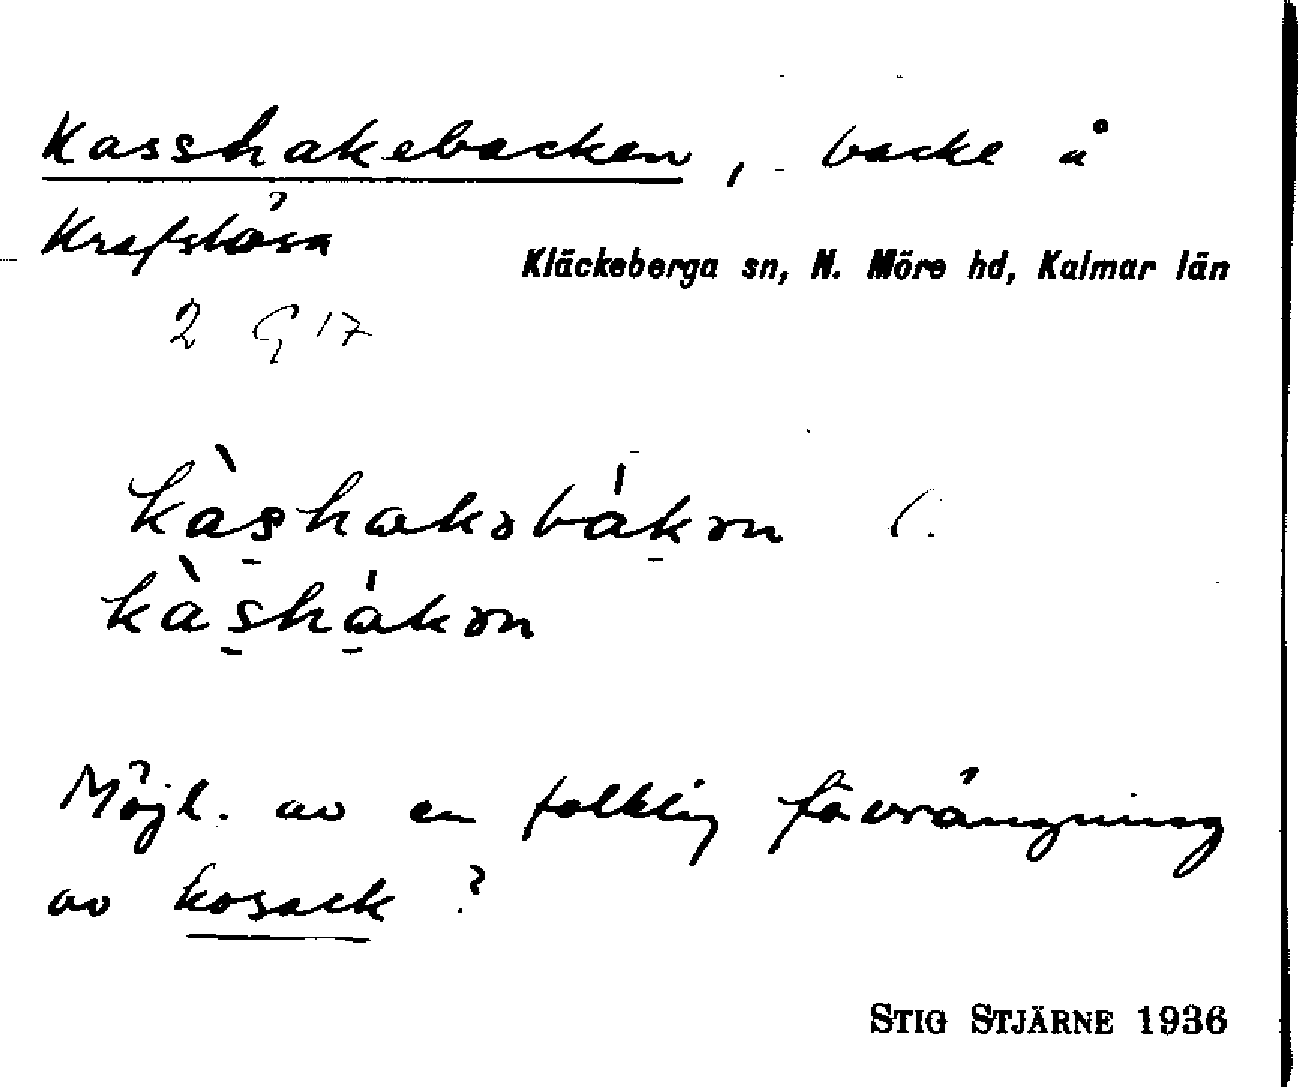 Kasshakebacken, backe å
Krafslösa
Kläckeberga sn, N. Möre hd, Kalmar län
2 G 17
kàs̠hakəbák̠ən (.
kàs̠há̠kən
Möjl. av en folklig förvrängning
av kosack ?
STIG STJÄRNE 1936